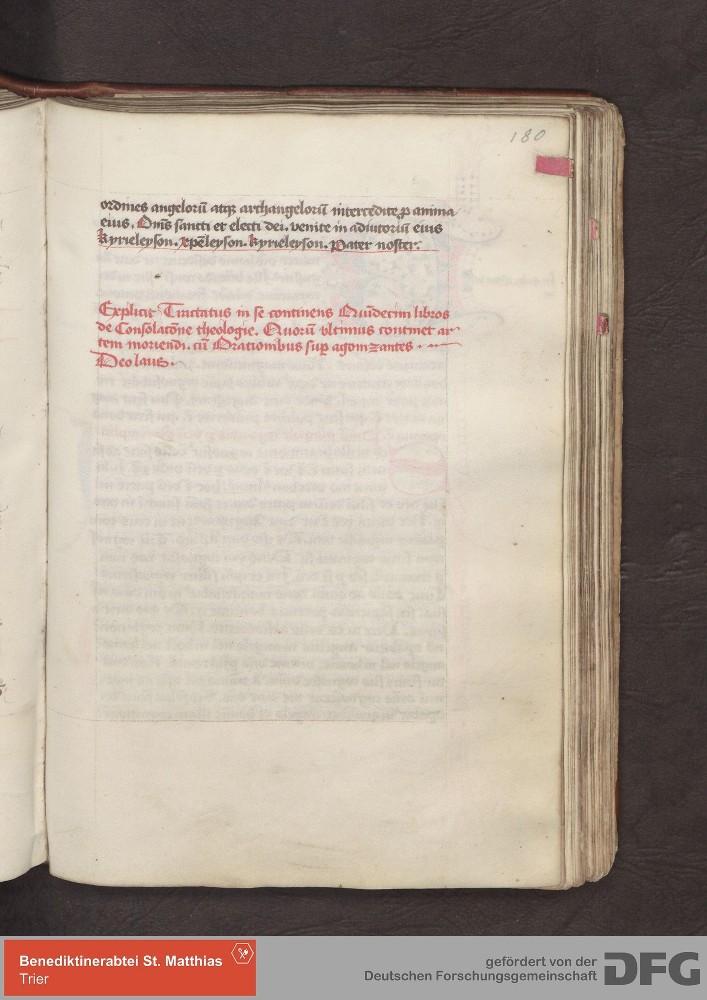 180
ordines angelorū atq; archangelorū intercedite ꝑ anima
eius. Om̄s sancti et electi dei. venite in adiutoriū eius
kyrieleyson. xp̄eleyson. kyrieleyson. Pater noster.
Explicit Tractatus in se continens Quīdecim libros
de Consolacōne theologie. Quorū vltimus continet ar
tem moriendi. cū Orationibus suꝑ agonizantes.
Deo laus.
Benediktinerabtei St. Matthias
Trier
gefördert von der
Deutschen Forschungsgemeinschaft
DFG